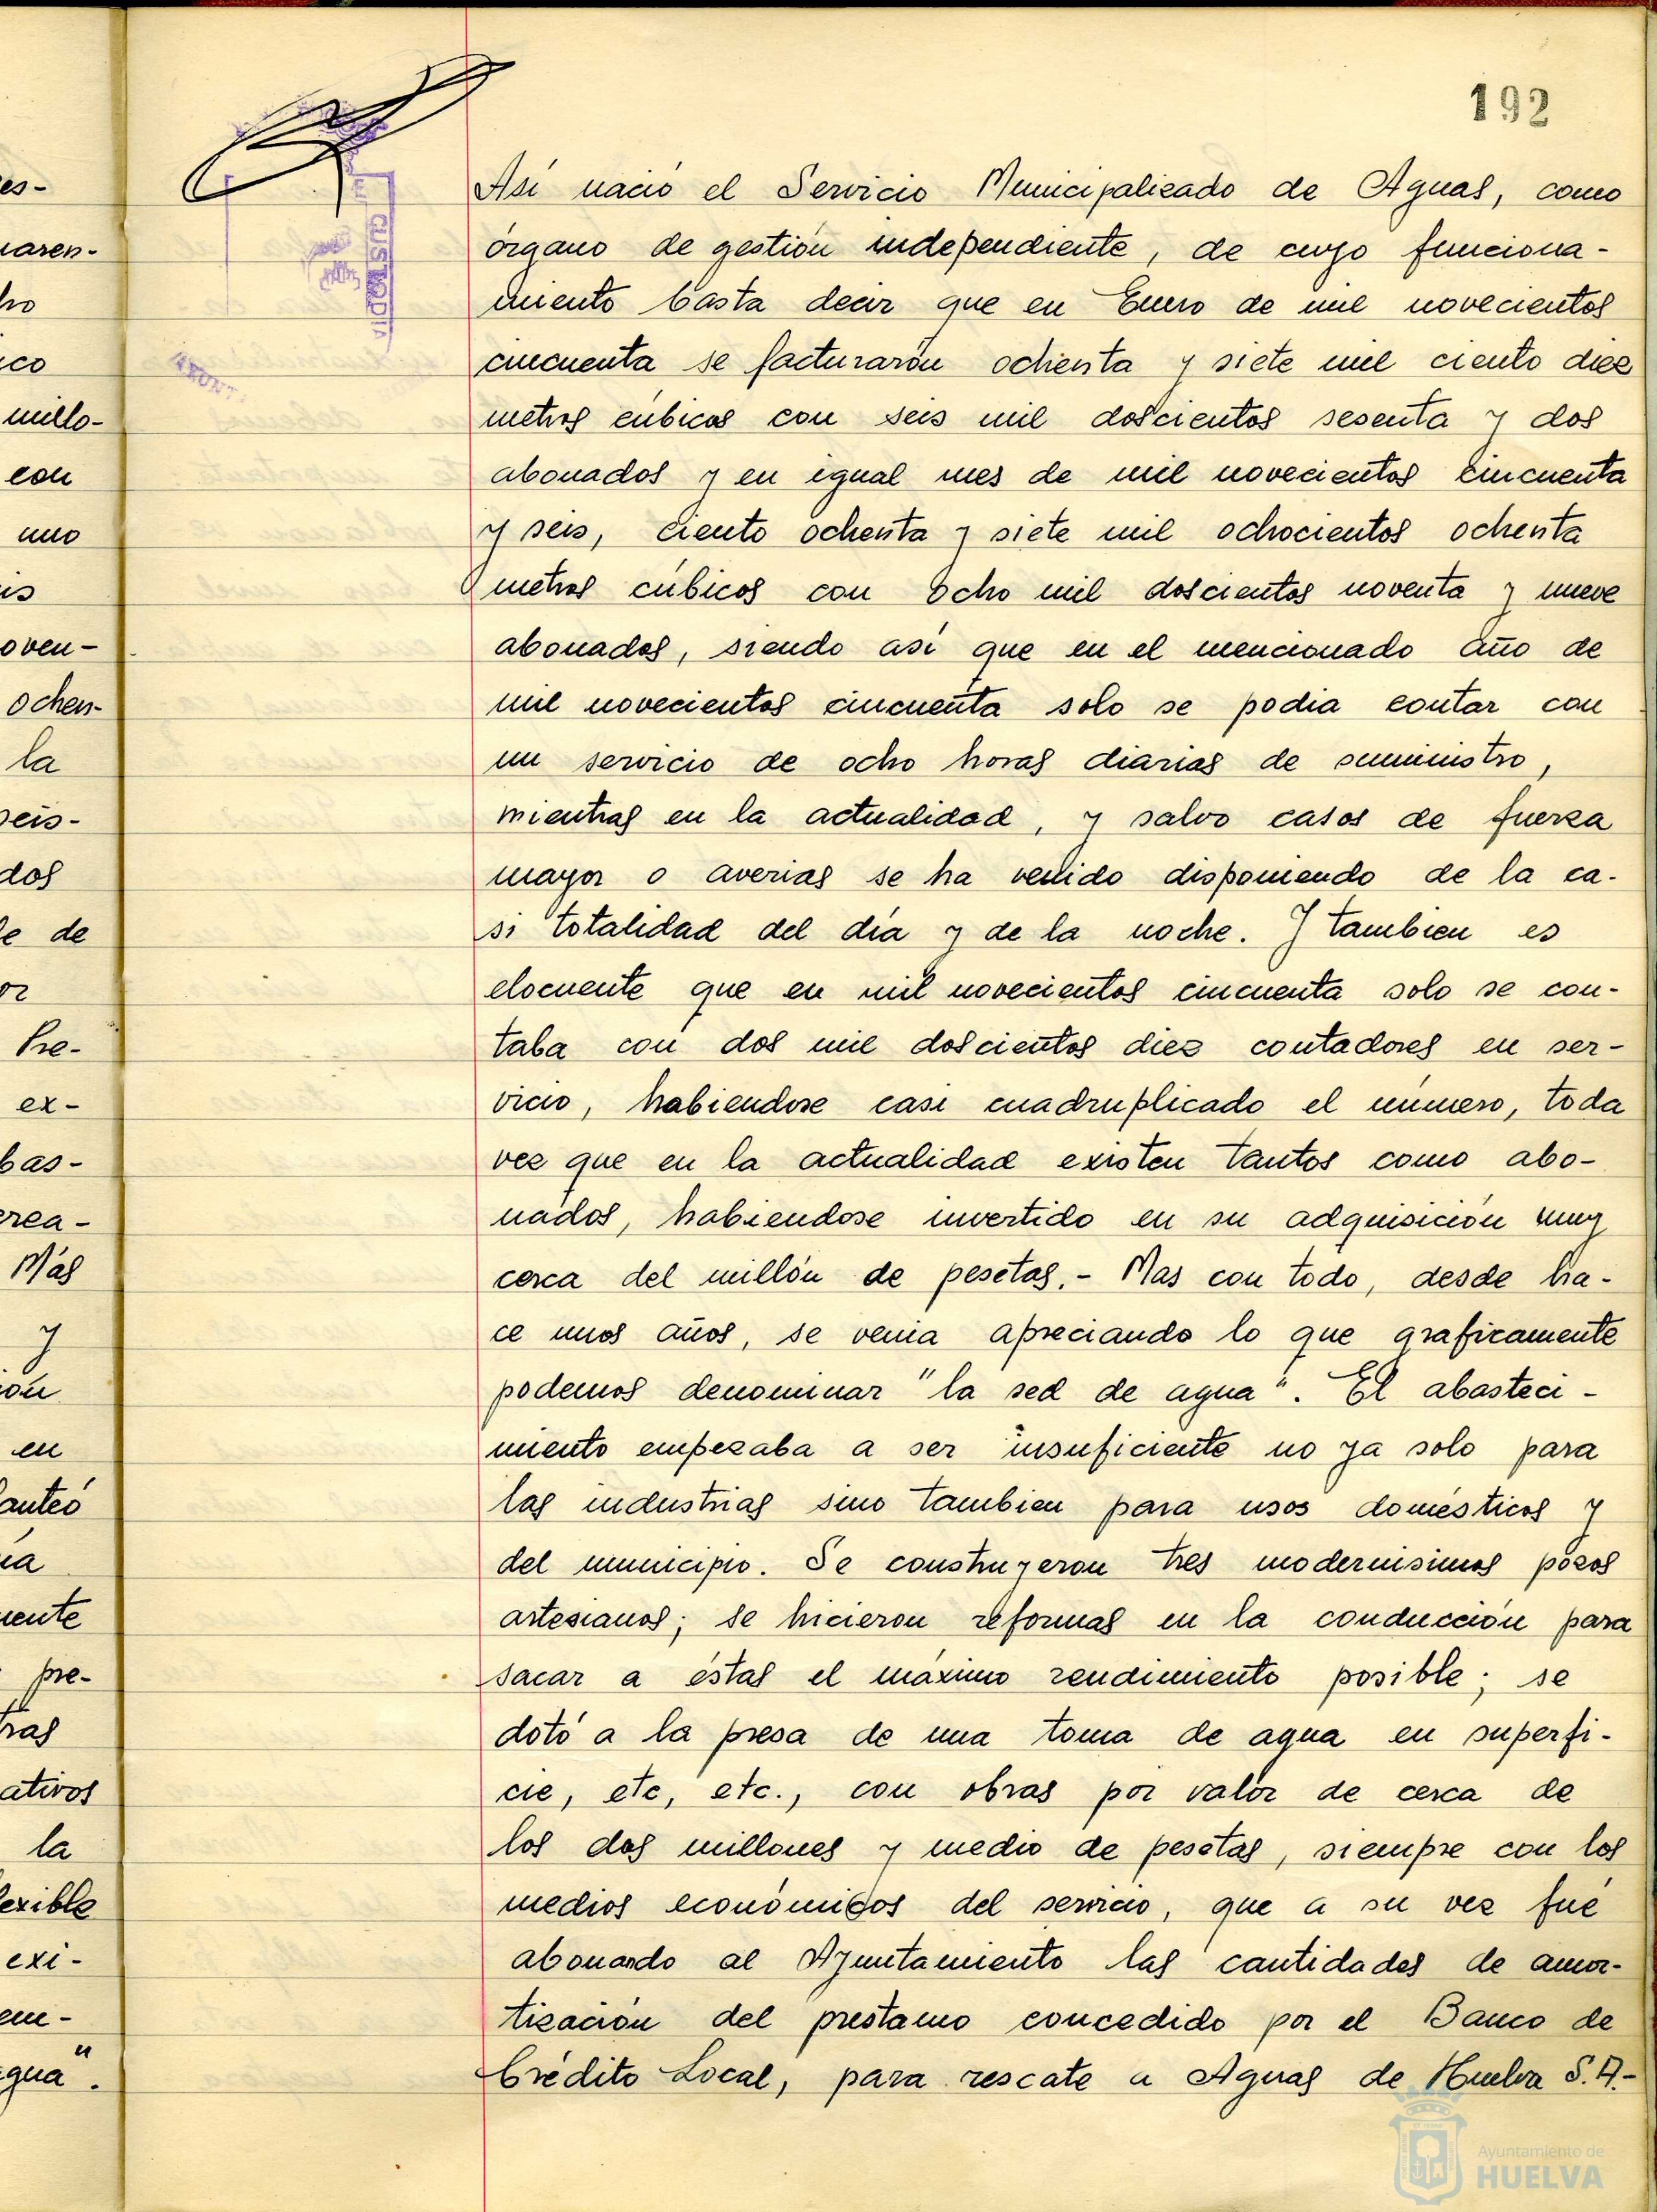 es-
uaren-
ho
ico
millo-
con
uno
is
oven-
ochen-
la
seis-
dos
le de
or
Pre-
ex-
bas-
crea-
Más
y
ión
en
lanteó
ua
uente
pre-
tras
ativos
la
lexible
exi-
em-
agua".
192
CUSTODIA
AYUNT.
Así nació el Servicio Municipalizado de Aguas, como
órgano de gestión independiente, de cuyo funciona-
miento basta decir que en Enero de mil novecientos
cincuenta se facturarón ochenta y siete mil ciento diez
metros cúbicos con seis mil doscientos sesenta y dos
abonados y en igual mes de mil novecientos cincuenta
y seis, ciento ochenta y siete mil ochocientos ochenta
metros cúbicos con ocho mil doscientos noventa y nueve
abonados, siendo así que en el mencionado año de
mil novecientos cincuenta solo se podia contar con
un servicio de ocho horas diarias de suministro,
mientras en la actualidad, y salvo casos de fuerza
mayor o averias se ha venido disponiendo de la ca-
si totalidad del día y de la noche. Y tambien es
elocuente que en mil novecientos cincuenta solo se con-
taba con dos mil doscientos diez contadores en ser-
vicio, habiendose casi cuadruplicado el número, toda
vez que en la actualidad existen tantos como abo-
nados, habiendose invertido en su adquisición muy
cerca del millón de pesetas.- Mas con todo, desde ha-
ce unos años, se venia apreciando lo que graficamente
podemos denominar "la sed de agua". El abasteci-
miento empezaba a ser insuficiente no ya solo para
las industrias sino tambien para usos domésticos y
del municipio. Se construyeron tres modernisimos pozos
artesianos; se hicieron reformas en la conducción para
sacar a éstas el máximo rendimiento posible; se
dotó a la presa de una toma de agua en superfi-
cie, etc, etc., con obras por valor de cerca de
los dos millones y medio de pesetas, siempre con los
medios económicos del servicio, que a su vez fué
abonando al Ayuntamiento las cantidades de amor-
tización del prestamo concedido por el Banco de
Crédito Local, para rescate a Aguas de Huelva S.A.-
Ayuntamiento de
HUELVA